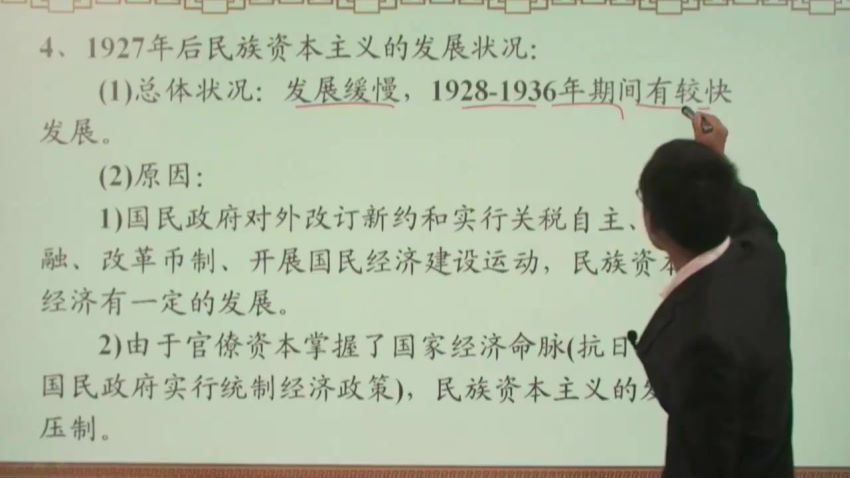 4、1927年后民族资本主义的发展状况：
(1)总体状况：发展缓慢，1928-1936年期间有较快
发展。
(2)原因：
1)国民政府对外改订新约和实行关税自主、
融、改革币制、开展国民经济建设运动，民族资
经济有一定的发展。
2)由于官僚资本掌握了国家经济命脉(抗日
国民政府实行统制经济政策)，民族资本主义的
压制。